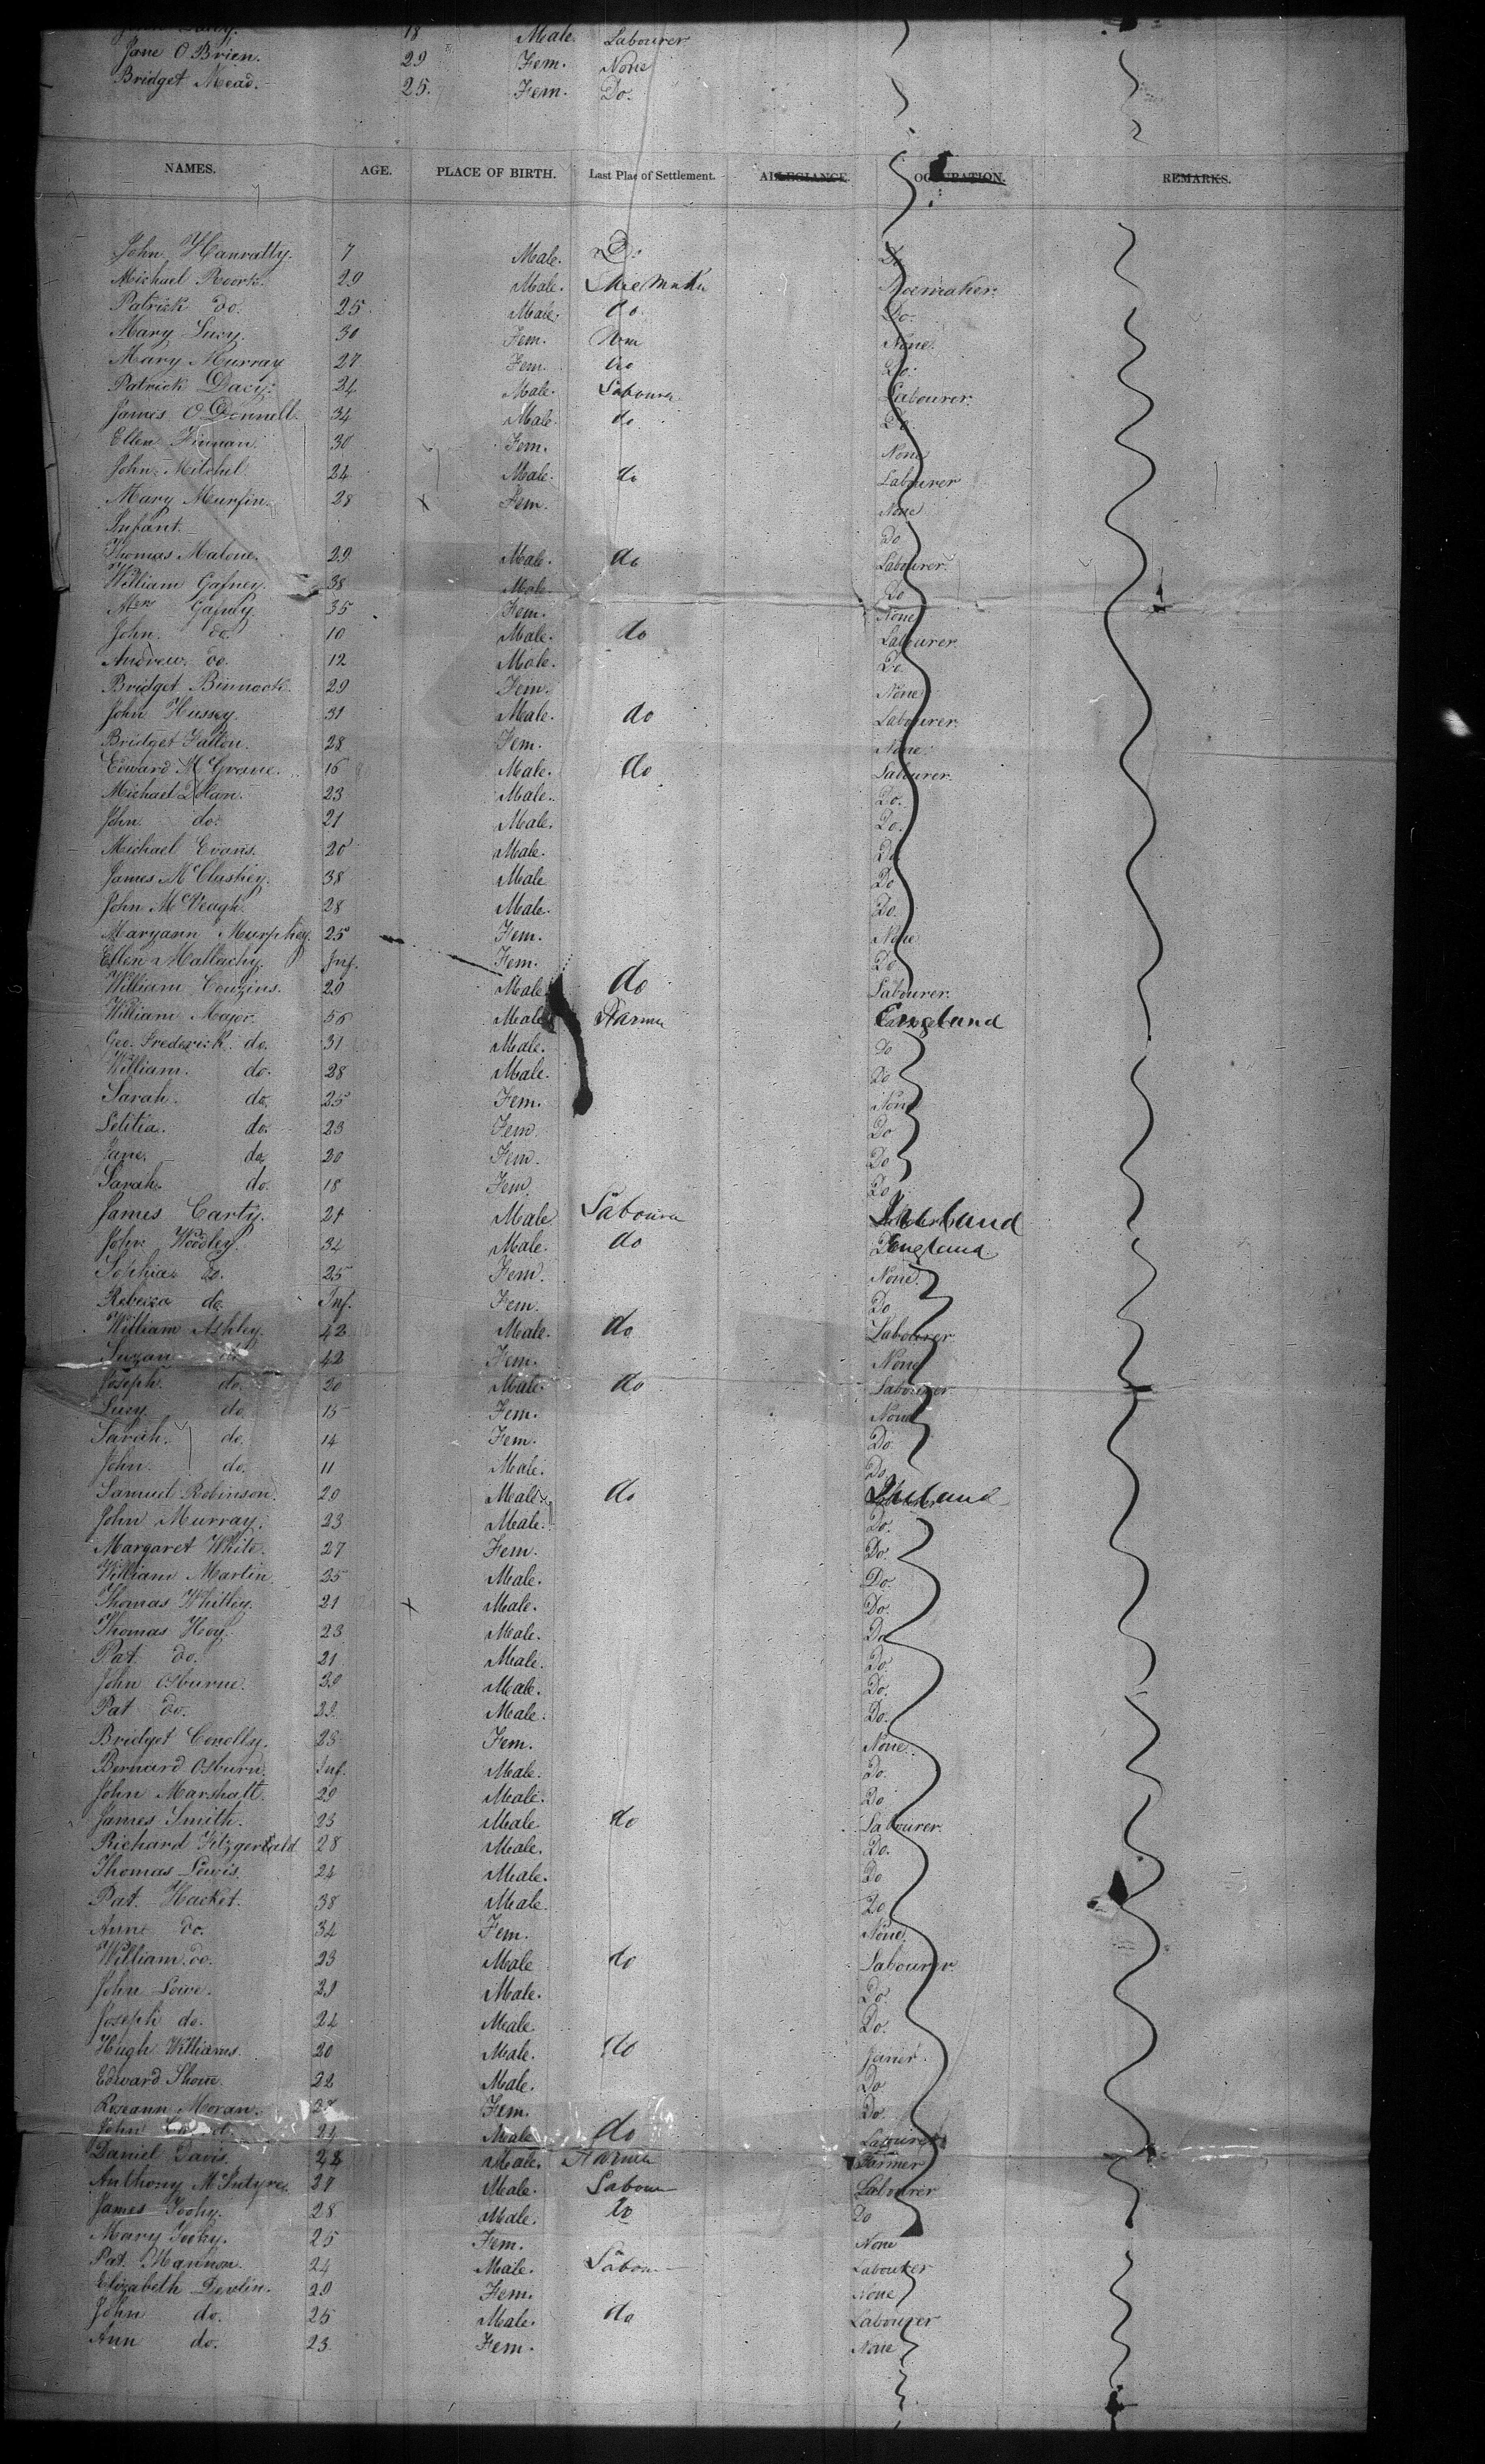 18 Male. Labourer
Jane O Brien. 29 Fem. None
Bridget Mead. 25. Fem. Do.
NAMES. AGE. PLACE OF BIRTH. Last Place of Settlement. ALLEGIANCE. OCCUPATION. REMARKS.
John Hanratty. 7 Male. Do. Do
Michael Roork. 29 Male. Shoemaker Shoemaker.
Patrick do. 25 Male. do. Do.
Mary Lacy. 30 Fem. None.
Mary Murray 27 Fem. do Do.
Patrick Davy. 24 Male. Labourer Labourer.
James O Donnell. 34 Male. do Do.
Ellen Finnan. 30 Fem. None
John Mitchel. 24 Male. do Labourer
Mary Murfin. 28 Fem. None
Infant. Do
Thomas Malone. 29 Male. do Labourer.
William Gafney. 38 Male. Do
Mrs Gafney 35 Fem. None
John do. 10 Male. do Labourer.
Andrew. do. 12 Male. Do
Bridget Binnock. 29 Fem. None
John Hussey. 31 Male. do Labourer
Bridget Fallon. 28 Fem. None.
Edward McGrane. 16 Male. do Labourer.
Michael Dolan. 23 Male. Do.
John do. 21 Male. Do.
Michael Evans. 20 Male. Do
James McCluskey. 38 Male Do
John McVeagh. 28 Male. Do.
Maryann Murphey. 25 Fem. None
Ellen Mallachy. Inf. Fem. Do
William Couzins. 29 Male. do Labourer.
William Major. 56 Male Farmer England
Geo. Frederick do. 31 Male. Do
William. do. 28 Male. Do
Sarah. do. 25 Fem. None
Letitia. do. 23 Fem. Do
Jane. do. 20 Fem. Do
Sarah. do. 18 Fem. Do
James Carty. 21 Male Labourer Ireland
John Woodley. 34 Male. do England
Sophia do. 25 Fem. None.
Rebecca do. Inf. Fem. Do
William Ashley. 42 Male. do Labourer
Suzan do. 42 Fem. None
Joseph. do. 20 Male. do Labourer
Lucy do. 15 Fem. None
Sarah. do. 14 Fem. Do.
John. do. 11 Male. Do
Samuel Robinson. 20 Male. do Ireland
John Murray. 23 Male. Do.
Margaret White. 27 Fem. Do.
William Martin. 25 Male. Do.
Thomas Whitley. 21 Male. Do.
Thomas Hoy. 23 Male. Do
Pat. do. 21 Male. Do.
John Osburne. 30 Male. Do.
Pat do. 29. Male. Do.
Bridget Conelly. 28 Fem. None.
Bernard Osburn. Inf. Male. Do.
John Marshall. 29 Male. Do
James Smith. 23 Male do Labourer.
Richard Fitzgerald 28 Male. Do.
Thomas Lewis. 24 Male. Do
Pat. Hacket. 38 Male. Do
Anne do. 34 Fem. None.
William. do. 23 Male do Labourer
John Lowe. 29 Male. Do.
Joseph do. 24 Male. Do.
Hugh Williams. 20 Male. do Joiner.
Edward Shone. 22 Male. Do
Roseann Moran. 27 Fem. Do.
John 24 Male do Labourer
Daniel Davis. 28 Male. Farmer Farmer
Anthony McIntyre. 27 Male. Labour Labourer
James Toohy. 28 Male. do Do
Mary Toohy. 25 Fem. None
Pat. Hannon. 24 Male. Labour Labourer
Elizabeth Devlin. 29 Fem. None
John do. 25 Male. do Labourer
Ann do. 23 Fem. None